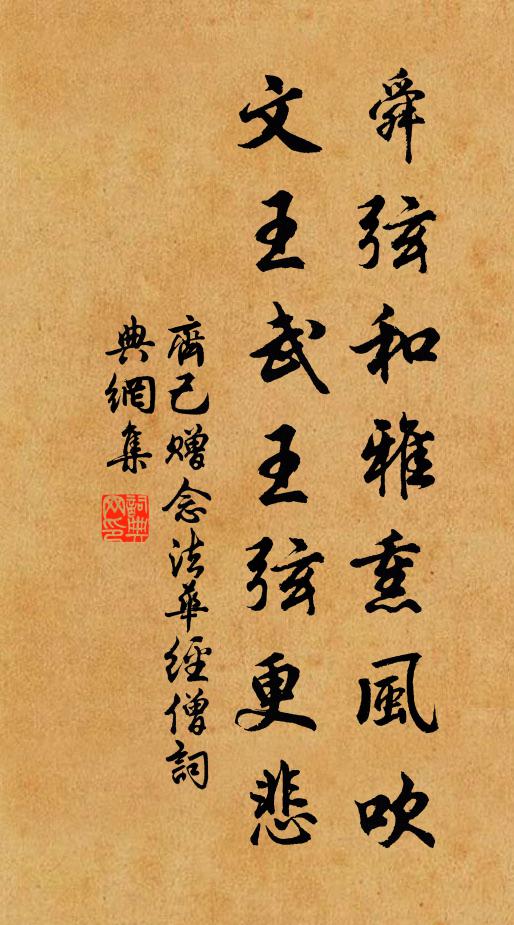 舜弦和雅熏風吹
文王武王弦更悲
齊己贈念法華經僧詞
典網集
詞典
网印